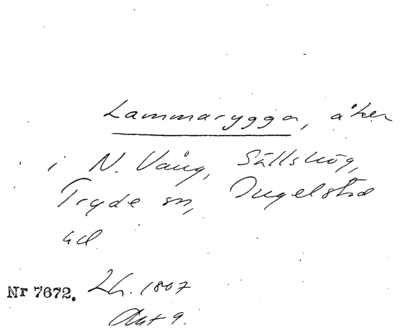 Lammarygga, åker
i N. Vång, Sällshög,
Tryde sn, Ingelstad
hd
Nr 7672. Lh. 1807
Akt 9.